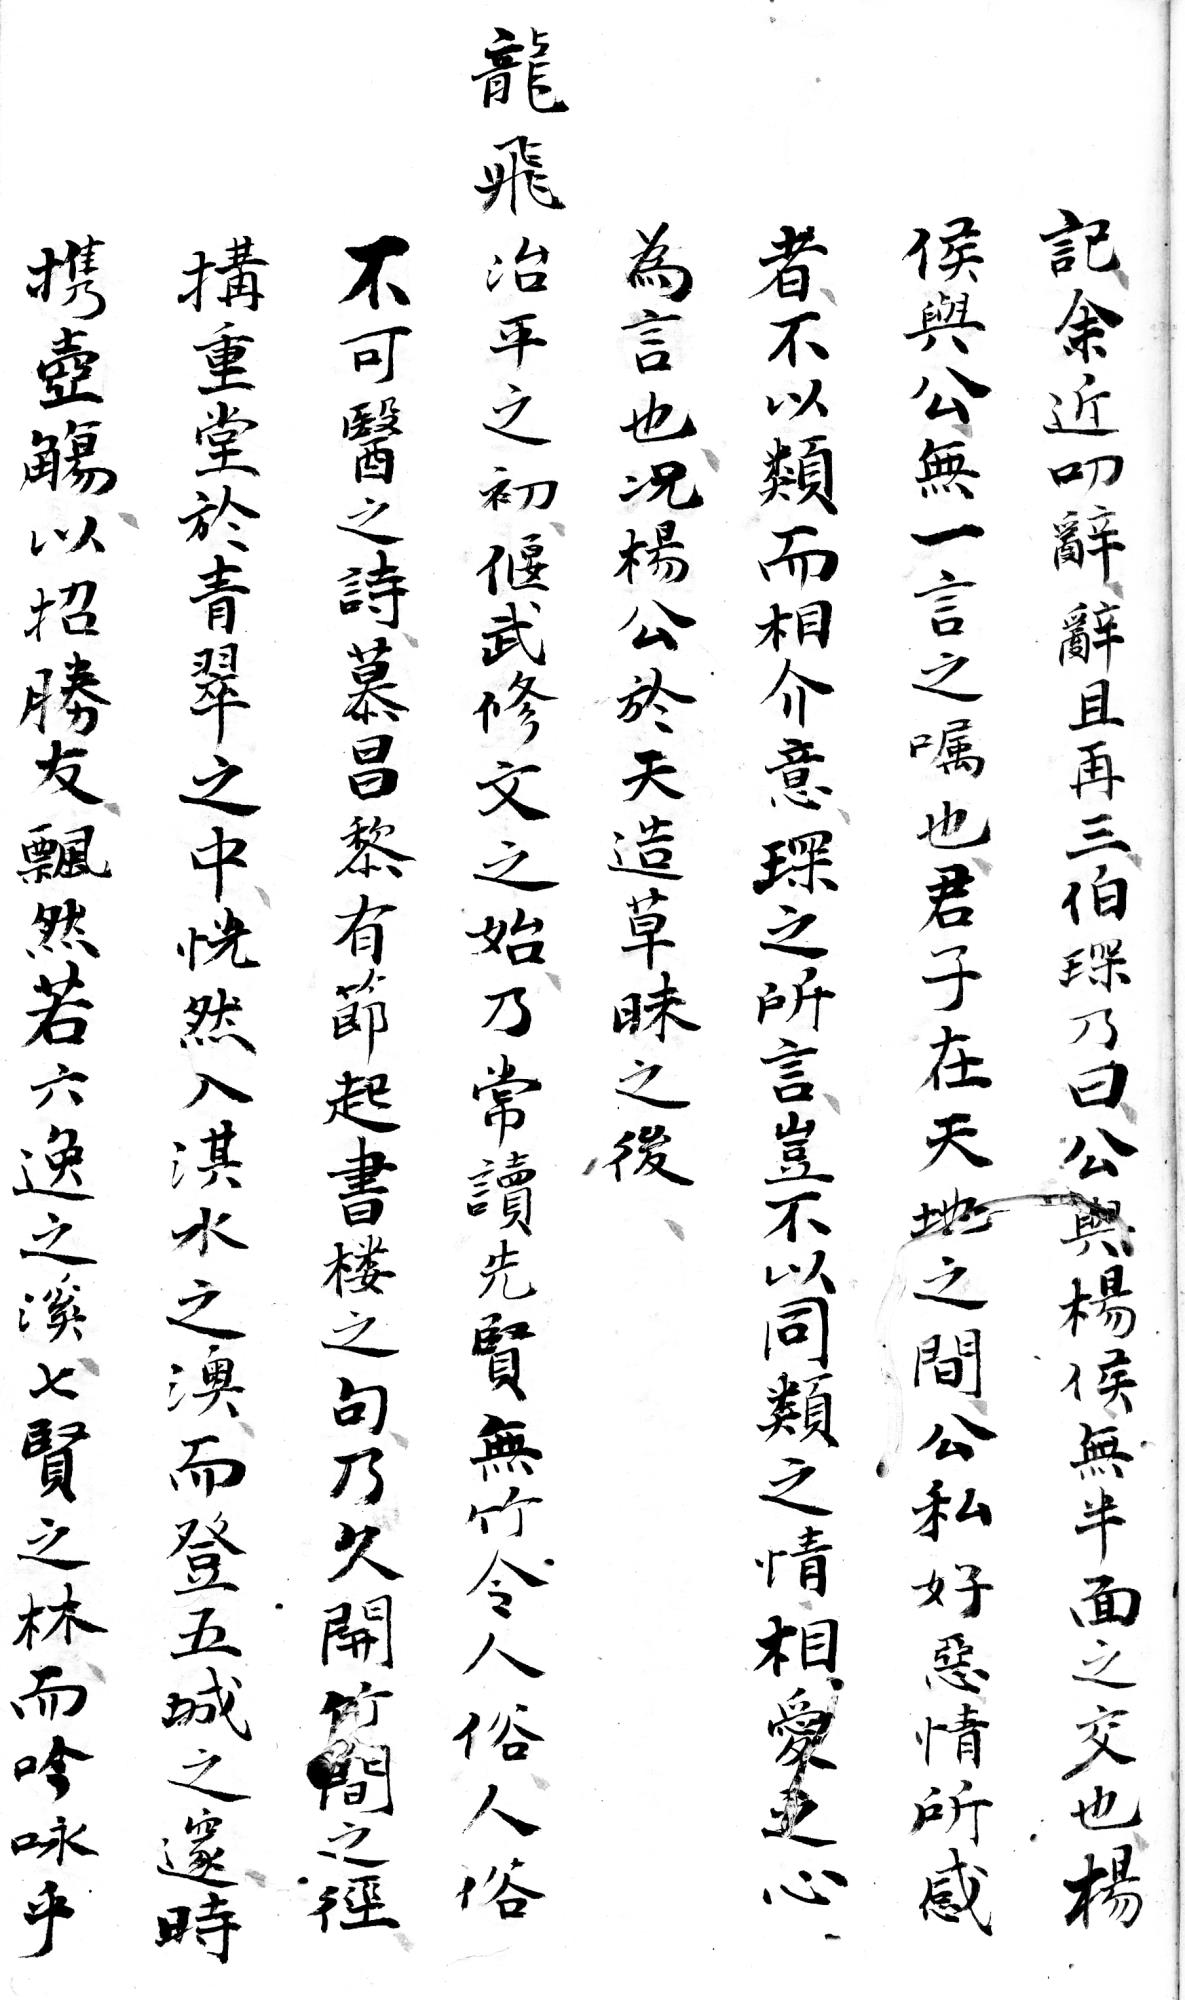 記余近叨辭辭且再三伯琛乃曰公與楊侯無半面之交也楊
侯與公無一言之嘱也君子在天地之間公私好惡情所感
者不以類而相介意琛之所言豈不以同類之情相愛之心
為言也况楊公於天造草昧之後
龍飛治平之初偃武修文之始乃常讀先賢無竹令人俗人俗
不可醫之詩慕昌黎有節起書楼之句乃久開竹間之徑
搆重堂於青翠之中恍然入淇水之澳而登五城之邃時
携壺觴以招勝友飄然若六逸之溪七賢之林而吟咏乎